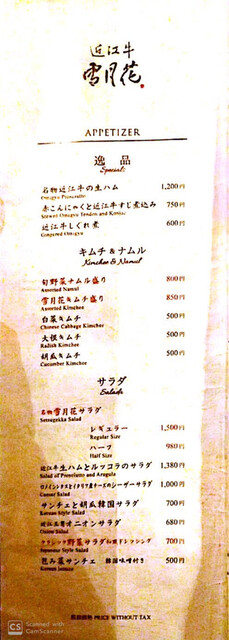 近江牛
雪月花
APPETIZER
逸 品
Specials
名物近江牛の生ハム 1,200円
Omigyu Prosciutto
赤こんにゃくと近江牛すじ煮込み 750円
Stewed Omigyu Tendon and Konjac
近江牛しぐれ煮 600円
Gingered Omigyu
キムチ&ナムル
Kimchee & Namul
旬野菜ナムル盛り 800円
Assorted Namul
雪月花キムチ盛り 850円
Assorted Kimchee
白菜キムチ 500円
Chinese Cabbage Kimchee
大根キムチ 500円
Radish Kimchee
胡瓜キムチ 500円
Cucumber Kimchee
サラダ
Salads
名物雪月花サラダ
Setsugekka Salad
レギュラー 1,500円
Regular Size
ハーフ 980円
Half Size
近江牛生ハムとルッコラのサラダ 1,380円
Salad of Prosciutto and Arugula
ロメインレタスとイタリア産チーズのシーザーサラダ 1,000円
Caesar Salad
サンチェと胡瓜韓国サラダ 700円
Korean Style Salad
オニオンサラダ 680円
Onion Salad
野菜サラダ和風ドレッシング 700円
Japanese Style Salad
包み菜サンチェ 韓国味噌付き 500円
Korean Lettuce
PRICE WITHOUT TAX
CS Scanned with
CamScanner